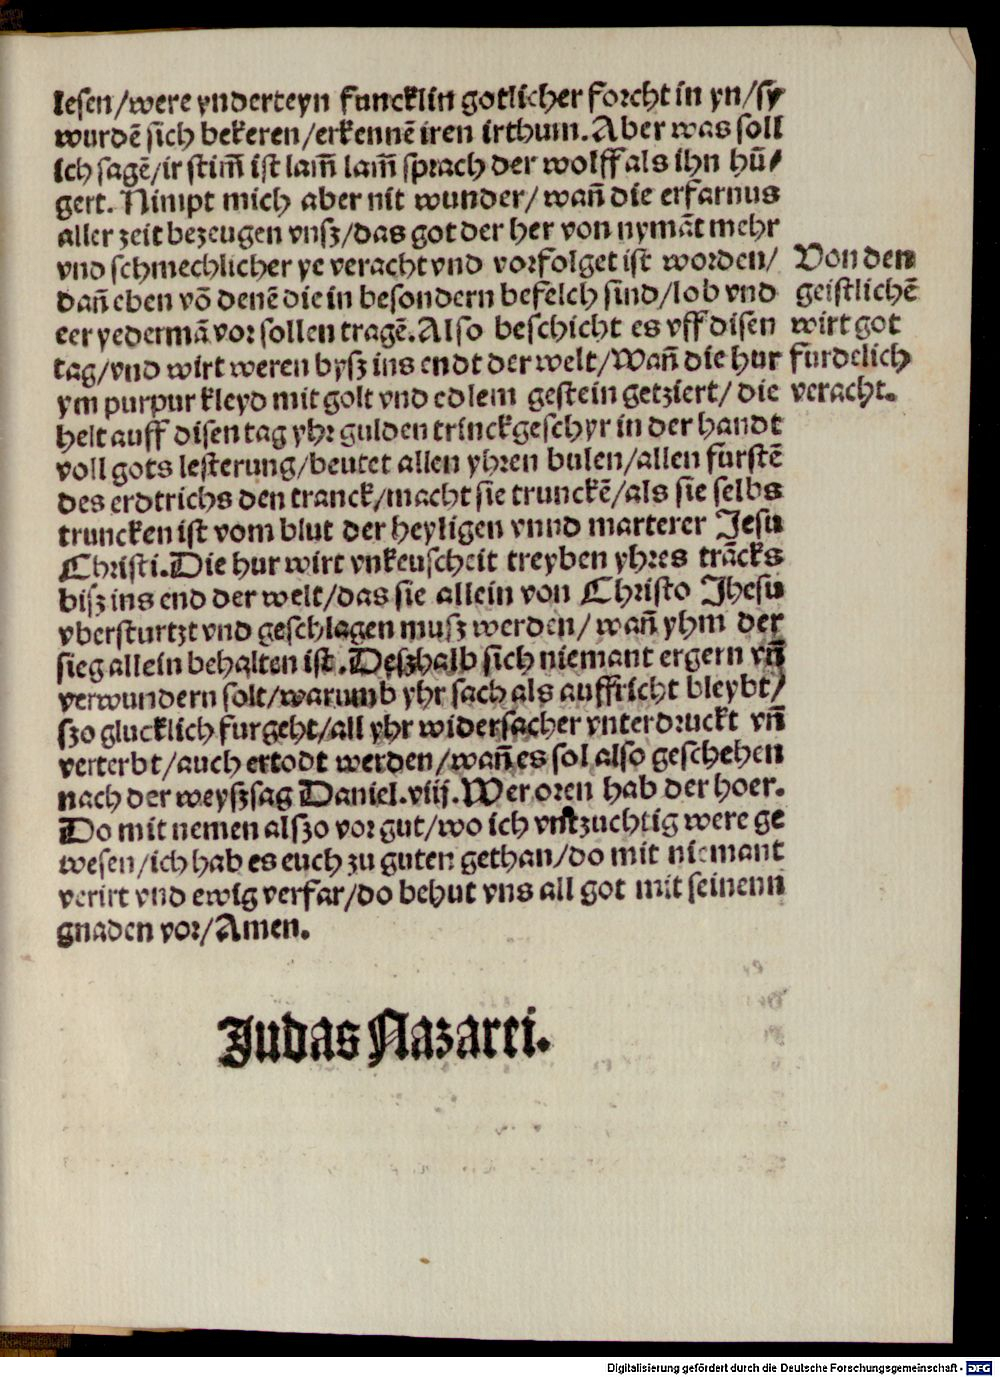 lesen/were ynderteyn funcklin gotlicher forcht in yn/sy
wurdē sich bekeren/erkennē iren irthum. Aber was soll
ich sagē/ir stim̄ ist lam̄ lam̄ sprach der wolff als ihn hū-
gert. Nimpt mich aber nit wunder/ wañ die erfarnus
aller zeit bezeugen vnsz/das got der her von nymāt mehr
vnd schmechlicher ye veracht vnd vorfolget ist worden/
dañ eben vō denē die in besondern befelch sind/lob vnd
eer yedermā vor sollen tragē. Also beschicht es vff disen
tag/vnd wirt weren bysz ins endt der welt/Wañ die hur
ym purpur kleyd mit golt vnd edlem gestein getziert/ die
helt auff disen tag yhr gulden trinckgeschyr in der handt
voll gots lesterung/beutet allen yhren bulen/allen furstē
des erdtrichs den tranck/macht sie trunckē/als sie selbs
truncken ist vom blut der heyligen vnnd marterer Jesu
Christi. Die hur wirt vnkeuscheit treyben yhres trācks
bisz ins end der welt/das sie allein von Christo Jhesu
vbersturtzt vnd geschlagen musz werden/ wañ yhm der
sieg allein behalten ist. Deszhalb sich niemant ergern vñ
verwundern solt/warumb yhr sach als auffricht bleybt/
szo glucklich furgeht/all yhr widersacher vnterdruckt vñ
verterbt/auch ertodt werden/wañ es sol also geschehen
nach der weyszsag Daniel.viij. Wer oren hab der hoer.
Do mit nemen alszo vor gut/wo ich vnzuchtig were ge
wesen/ich hab es euch zu guten gethan/do mit niemant
verirt vnd ewig verfar/do behut vns all got mit seinenn
gnaden vor/Amen.
Von den
geistlichē
wirt got
furdelich
veracht.
Judas Nazarei.
Digitalisierung gefördert durch die Deutsche Forschungsgemeinschaft - DFG